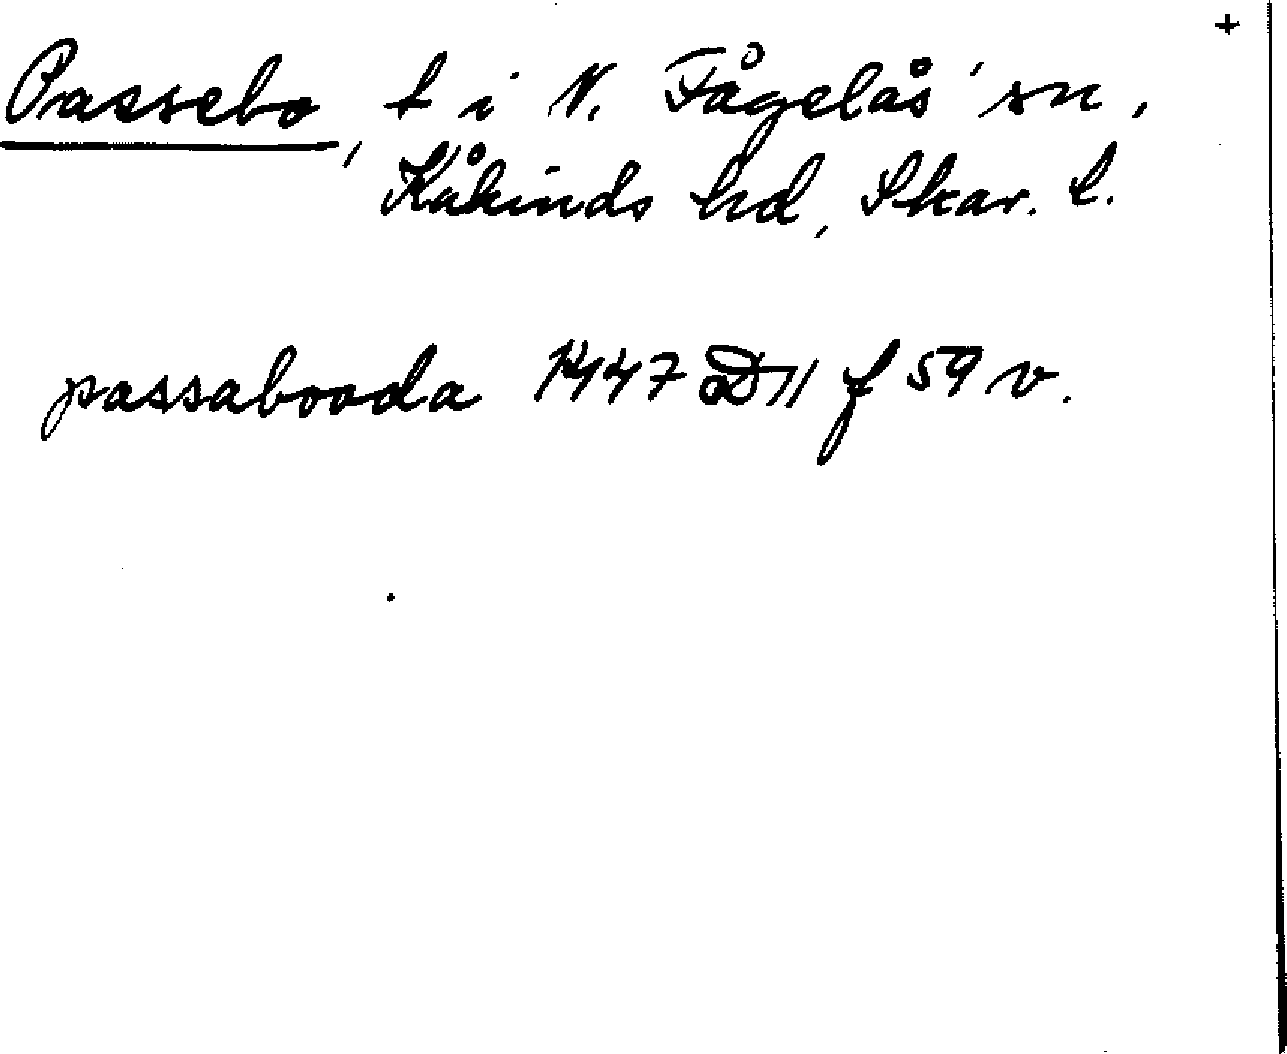 +
Passebo, t i N. Fågelås' sn,
Kåkinds hd, Skar. l.
passabooda 1447 D 11 f 59 v.